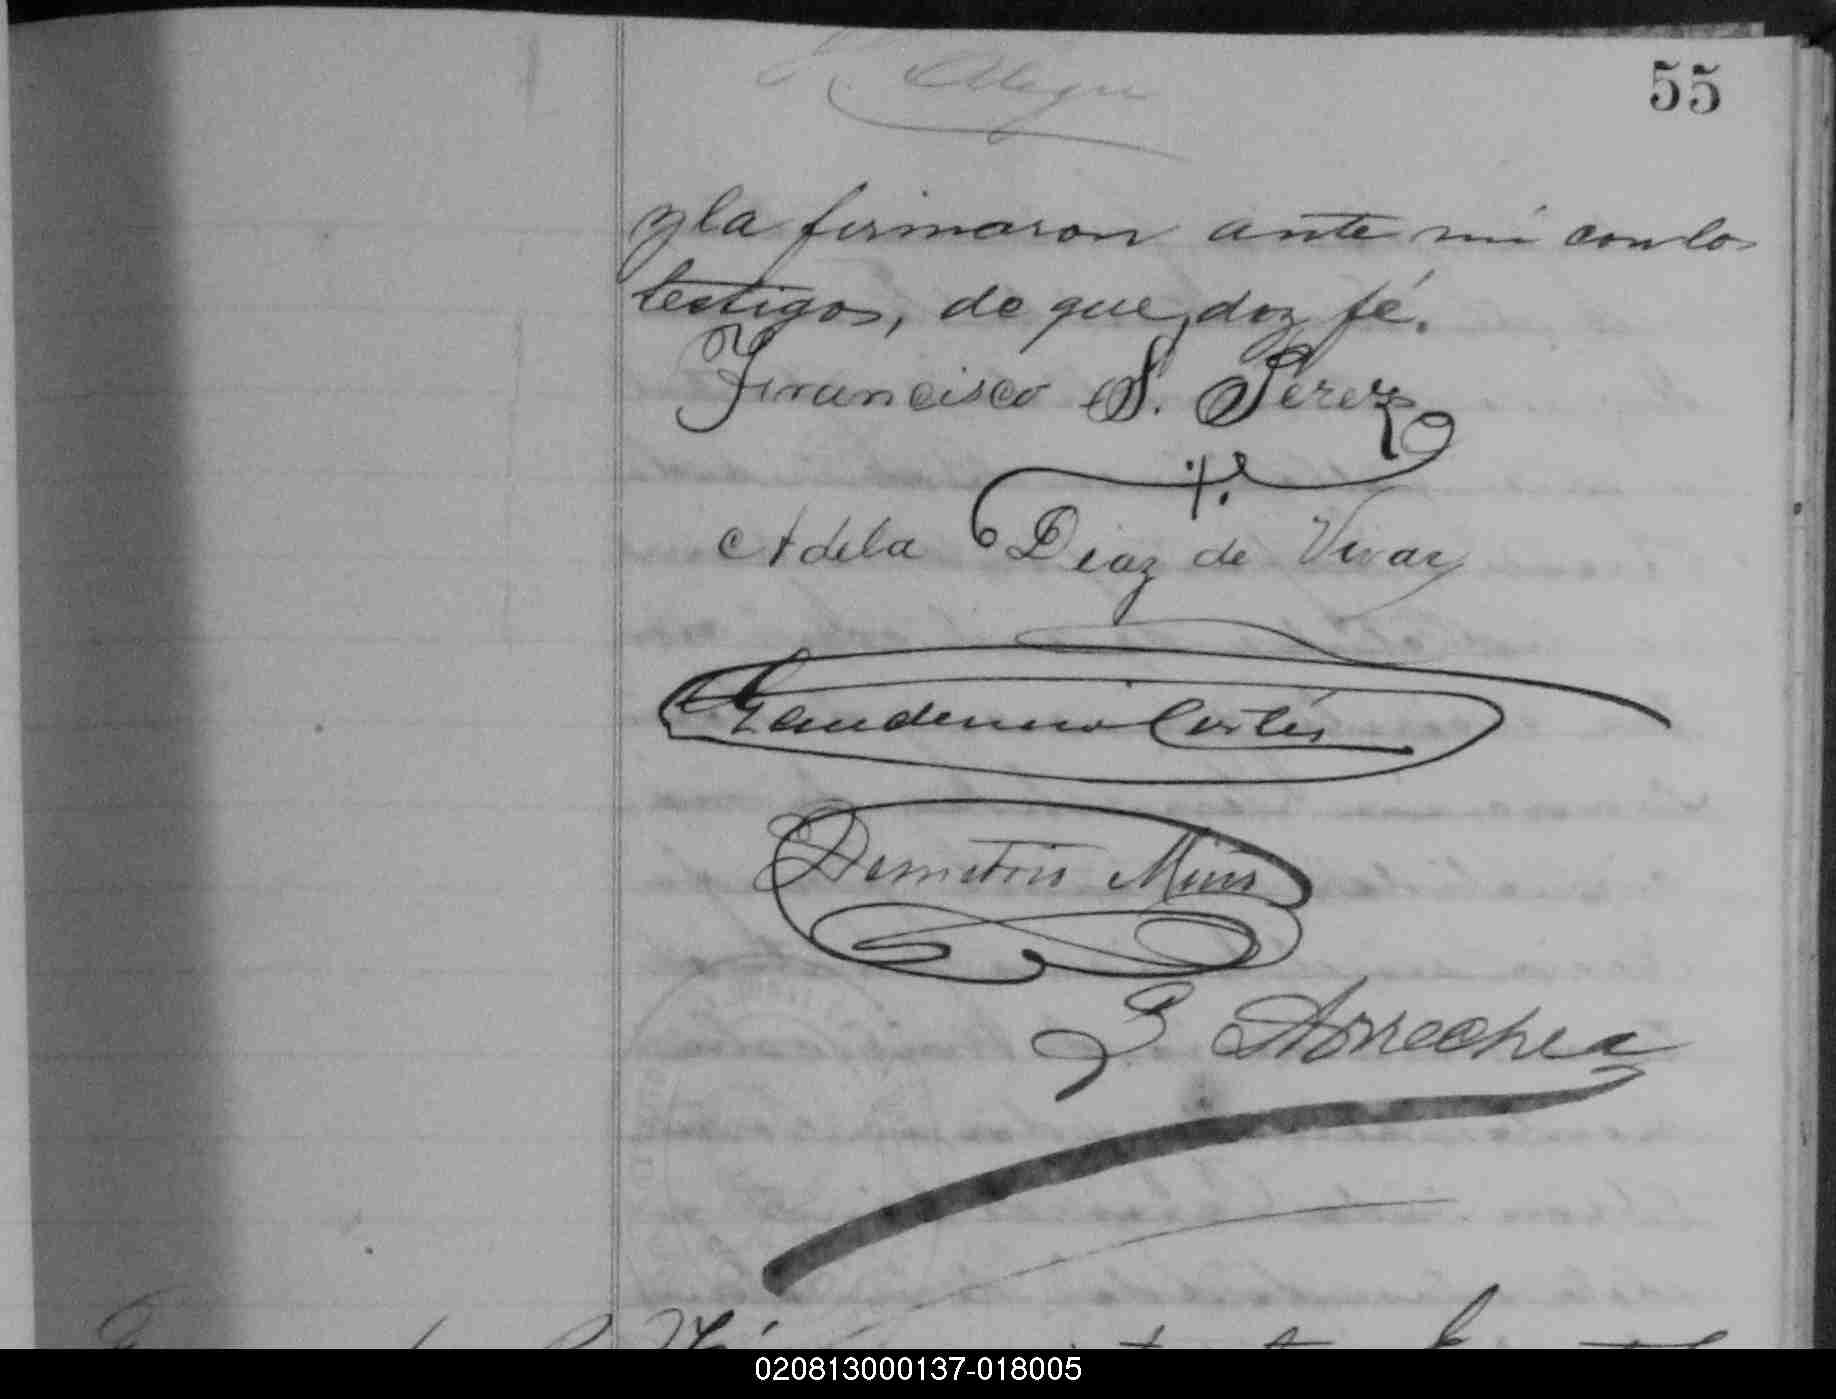 55
y la firmaron ante mi con los
testigos, de que doy fé.
Francisco S. Perez
Adela Diaz de Vivar
Gaudencio Cortés
Demetrio
Arrechea
020813000137-018005